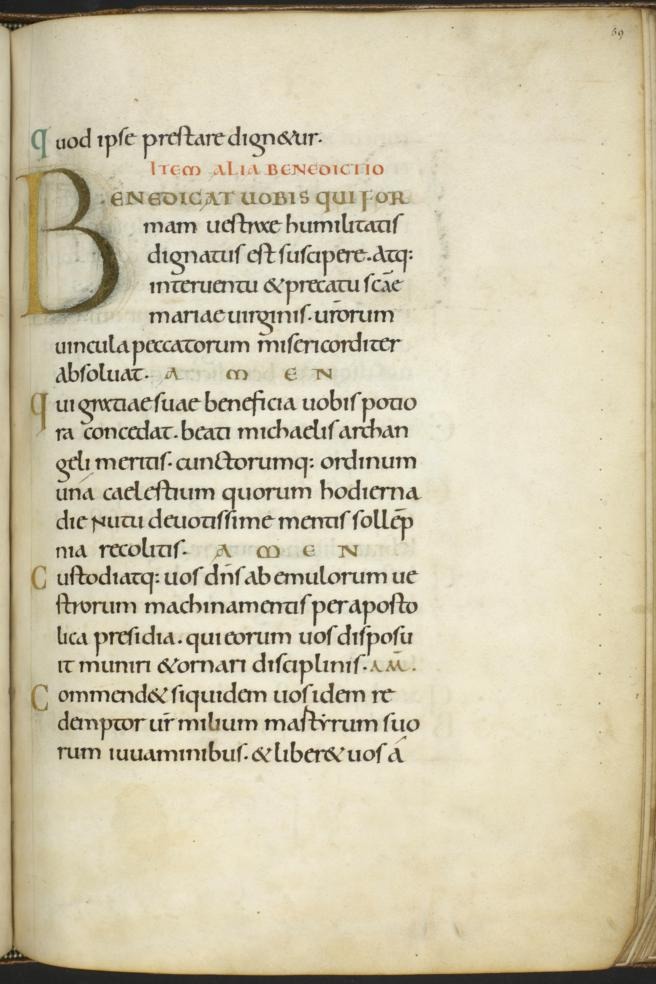 69
quod ipse prestare dign&ur.
ITEM ALIA BENEDICTIO
BENEDICAT UOBIS QUI FOR
mam uestrae humilitatis
dignatus est suscipere. Atq:
interuentu & precatu scae
mariae uirginis. urorum
uincula peccatorum misericorditer
absoluat. A M E N
qui gratiae suae beneficia uobis potio
ra concedat. beati michaelis archan
geli meritis. cunctorumq: ordinum
una caelestium quorum hodierna
die nutu deuotissime mentis sollep
nia recolitis. A M E N
Custodiatq: uos dns ab emulorum ue
strorum machinamentis per aposto
lica presidia. qui eorum uos disposu
it muniri & ornari disciplinis. AM.
Commend& siquidem uos idem re
demptor ur milium martyrum suo
rum iuuaminibus. & liber& uos a